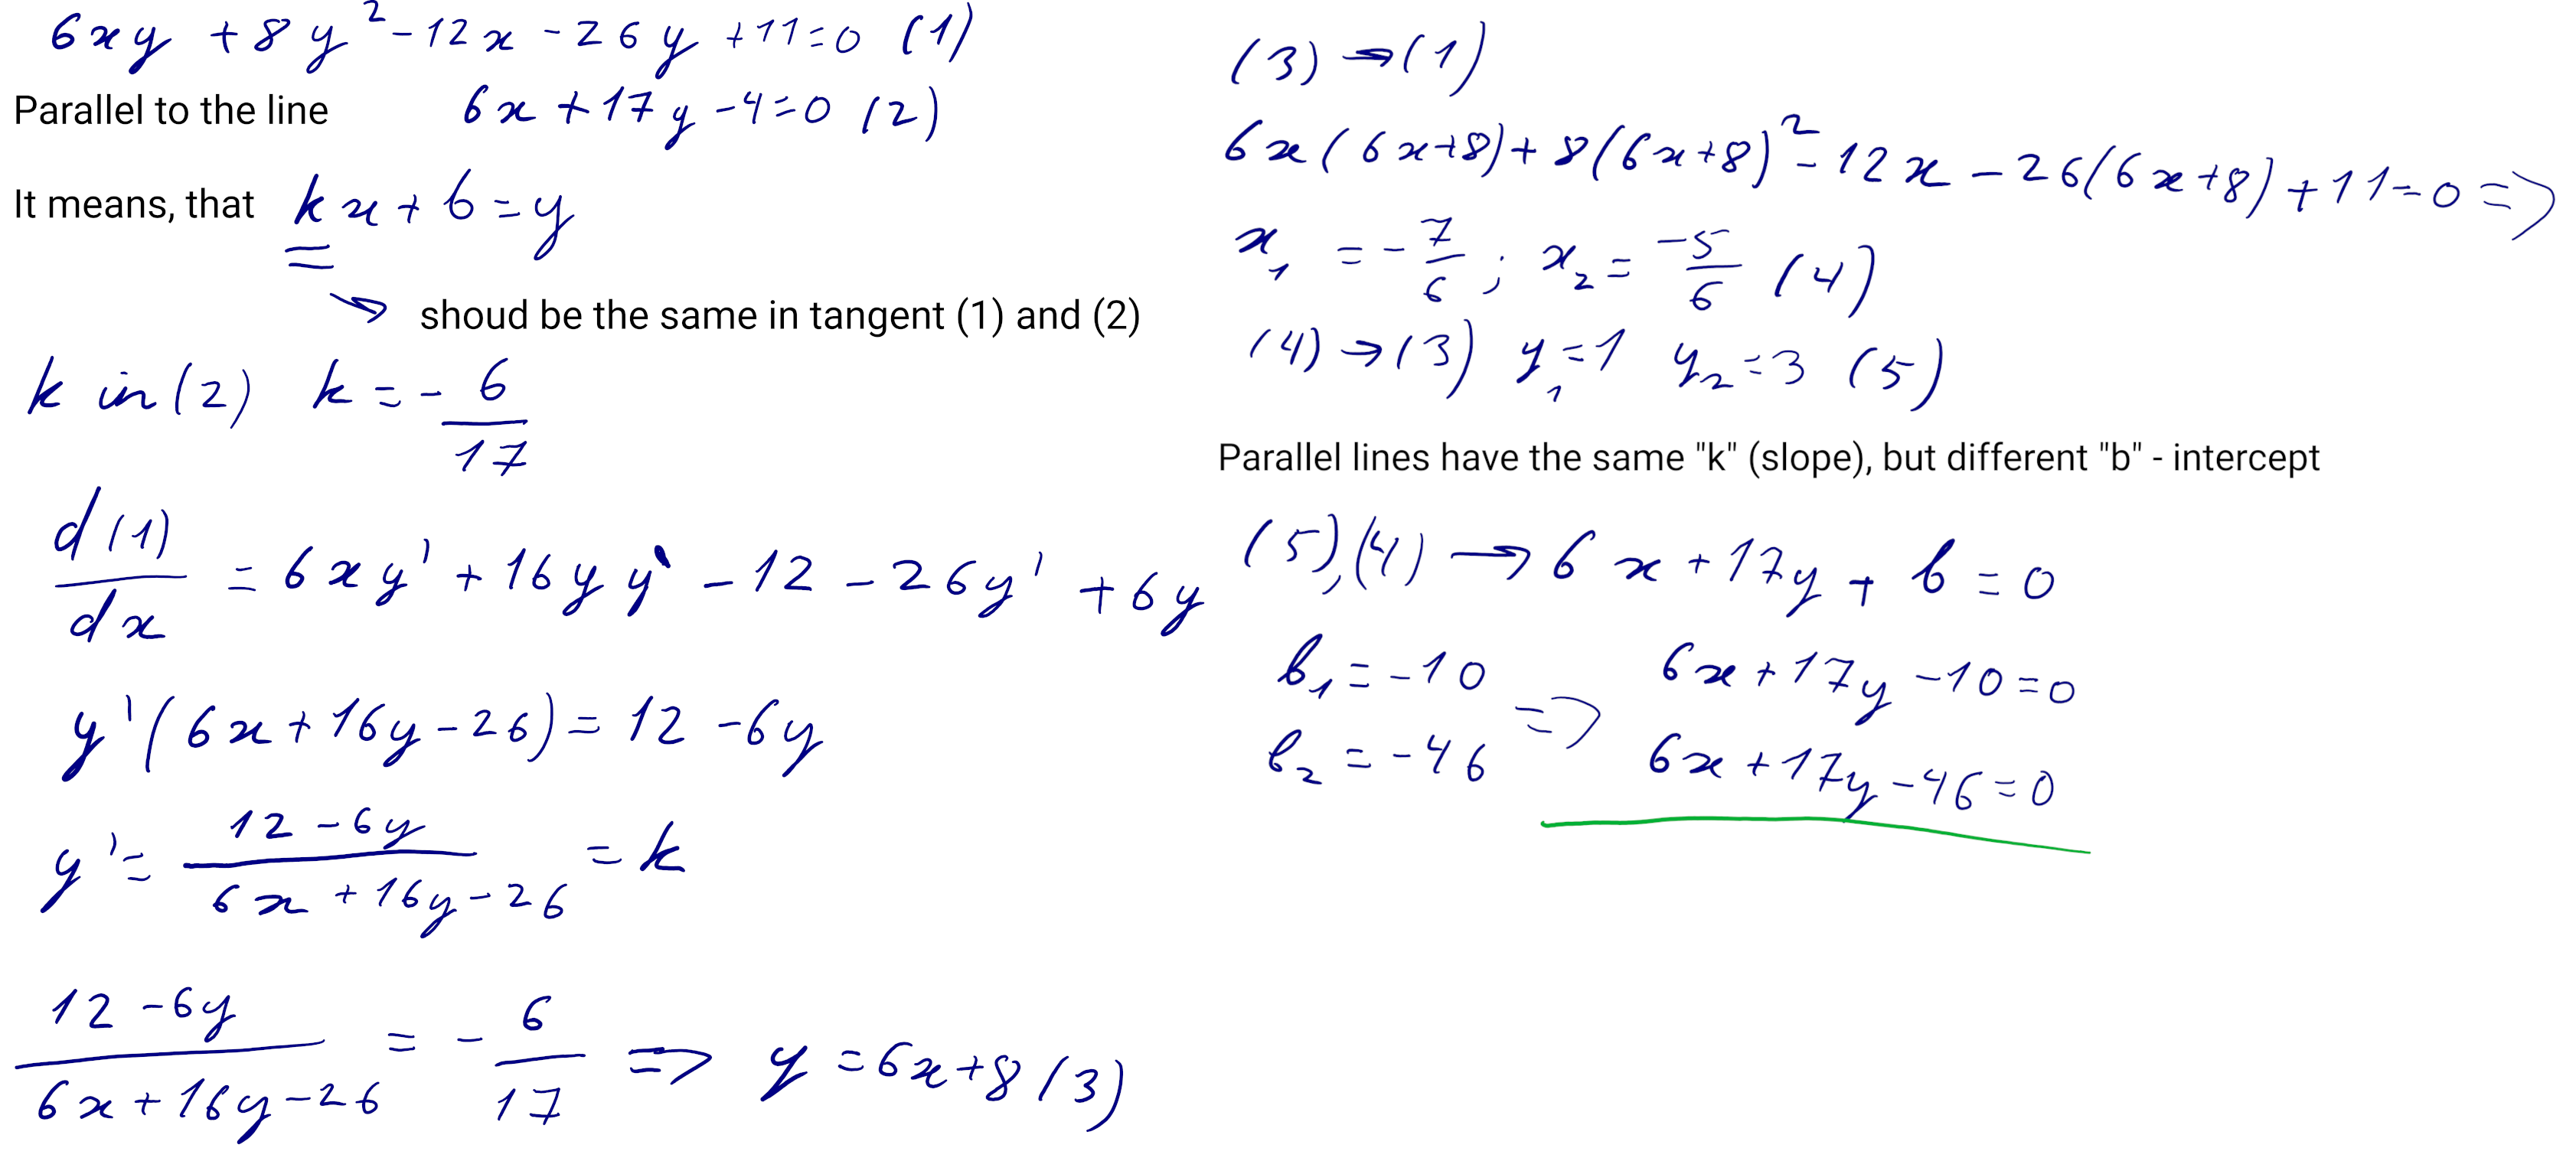 6xy + 8y² - 12x - 26y + 11 = 0 (1)
Parallel to the line 6x + 17y - 4 = 0 (2)
It means, that kx + b = y
→ shoud be the same in tangent (1) and (2)
k in (2) k = - 6/17
d(1)/dx = 6xy' + 16yy' - 12 - 26y' + 6y
y'(6x + 16y - 26) = 12 - 6y
y' = (12 - 6y)/(6x + 16y - 26) = k
(12 - 6y)/(6x + 16y - 26) = - 6/17 => y = 6x + 8 (3)
(3) → (1)
6x(6x+8) + 8(6x+8)² - 12x - 26(6x+8) + 11 = 0 =>
x₁ = - 7/6 ; x₂ = -5/6 (4)
(4) → (3) y₁ = 1 y₂ = 3 (5)
Parallel lines have the same "k" (slope), but different "b" - intercept
(5),(4) → 6x + 17y + b = 0
b₁ = -10 => 6x + 17y - 10 = 0
b₂ = -46 6x + 17y - 46 = 0